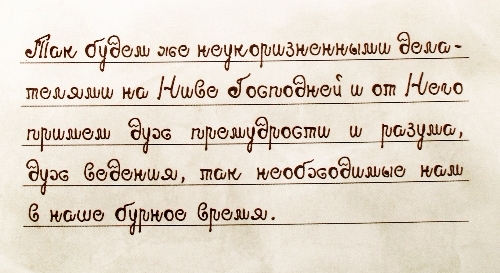 Так будем же неукоризненными дела-
телями на Ниве Господней и от Него
примем дух премудрости и разума,
дух ведения, так необходимые нам
в наше бурное время.